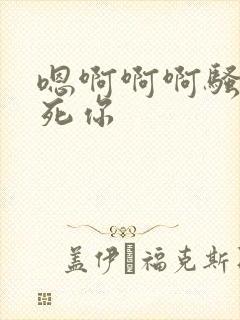 嗯啊啊啊骚
死你
盖伊·福克斯